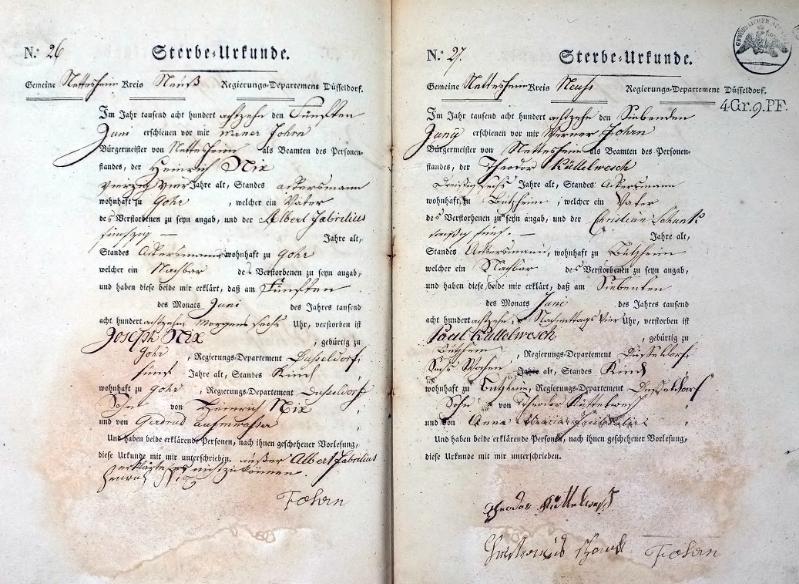 N.º 26
Sterbe-Urkunde.
Gemeine Nettesheim Kreis Neuß Regierungs-Departement Düsseldorf.
Im Jahr tausend acht hundert achtzehn den Fünften
Juni erschienen vor mir Werner Fohrn
Bürgermeister von Nettesheim als Beamten des Personen-
standes, der Heinrich Nix
vierzig vier Jahre alt, Standes Ackersmann
wohnhaft zu Gohr, welcher ein Vater
des Verstorbenen zu seyn angab, und der Albert Fabritius
fünfzig — Jahre alt,
Standes Ackersmann wohnhaft zu Gohr
welcher ein Nachbar des Verstorbenen zu seyn angab,
und haben diese beide mir erklärt, daß am Fünften
des Monats Juni des Jahres tausend
acht hundert achtzehn Morgens sechs Uhr, verstorben ist
Joseph Nix, gebürtig zu
Gohr, Regierungs-Departement Düsseldorf
fünf Jahre alt, Standes Kind
wohnhaft zu Gohr, Regierungs-Departement Düsseldorf
Sohn von Heinrich Nix
und von Gertrud
Und haben beide erklärende Personen, nach ihnen geschehener Vorlesung,
diese Urkunde mit mir unterschrieben. außer Albert Fabritius
erklärte nicht zu können.
Henrich Nix
Fohrn
N.º 27.
Sterbe-Urkunde.
Gemeine Nettesheim Kreis Neuß Regierungs-Departement Düsseldorf.
4Gr.9.PF.
Im Jahr tausend acht hundert achtzehn den Siebenden
Junii erschienen vor mir Werner Fohrn
Bürgermeister von Nettesheim als Beamten des Personen-
standes, der Theodor Küttelwesch
dreißig sechs Jahre alt, Standes Ackersmann
wohnhaft zu Bützheim, welcher ein Vater
des Verstorbenen zu seyn angab, und der Christian Schunk
dreißig fünf — Jahre alt,
Standes Ackersmann, wohnhaft zu Bützheim
welcher ein Nachbar des Verstorbenen zu seyn angab,
und haben diese beide mir erklärt, daß am Siebenten
des Monats Juni des Jahres tausend
acht hundert achtzehn Nachmittags vier Uhr, verstorben ist
Paul Küttelwesch, gebürtig zu
Bützheim, Regierungs-Departement Düsseldorf
Sechs Wochen Jahre alt, Standes Kind
wohnhaft zu Bützheim, Regierungs-Departement Düsseldorf
Sohn von Theodor Küttelwesch
und von Anna Maria
Und haben beide erklärende Personen, nach ihnen geschehener Vorlesung,
diese Urkunde mit mir unterschrieben.
Theodor Küttelwesch
Fohrn